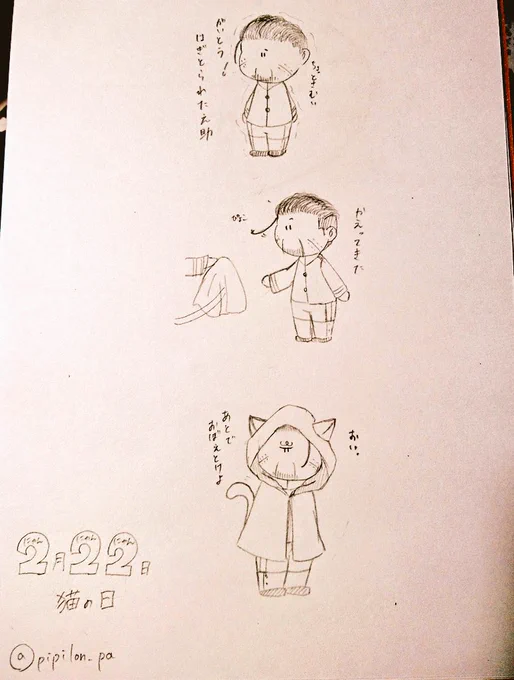 ちょとさむい
がいとう
はぎとられた之助
かえってきた
ぴょこ
おい。
あとで
おぼえとけよ
にゃん にゃん にゃん
2月22日
猫の日
@pipilon_pa